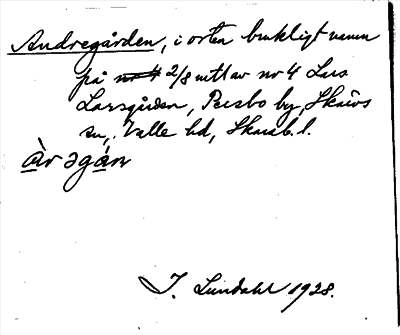 Andregården, i orten brukligt namn
på no 4 2/8 mtl av no 4 Lars
Larsgården, Persbo by, Skärvs
sn, Valle hd, Skarab. l.
àrəgán
I. Lundahl 1928.